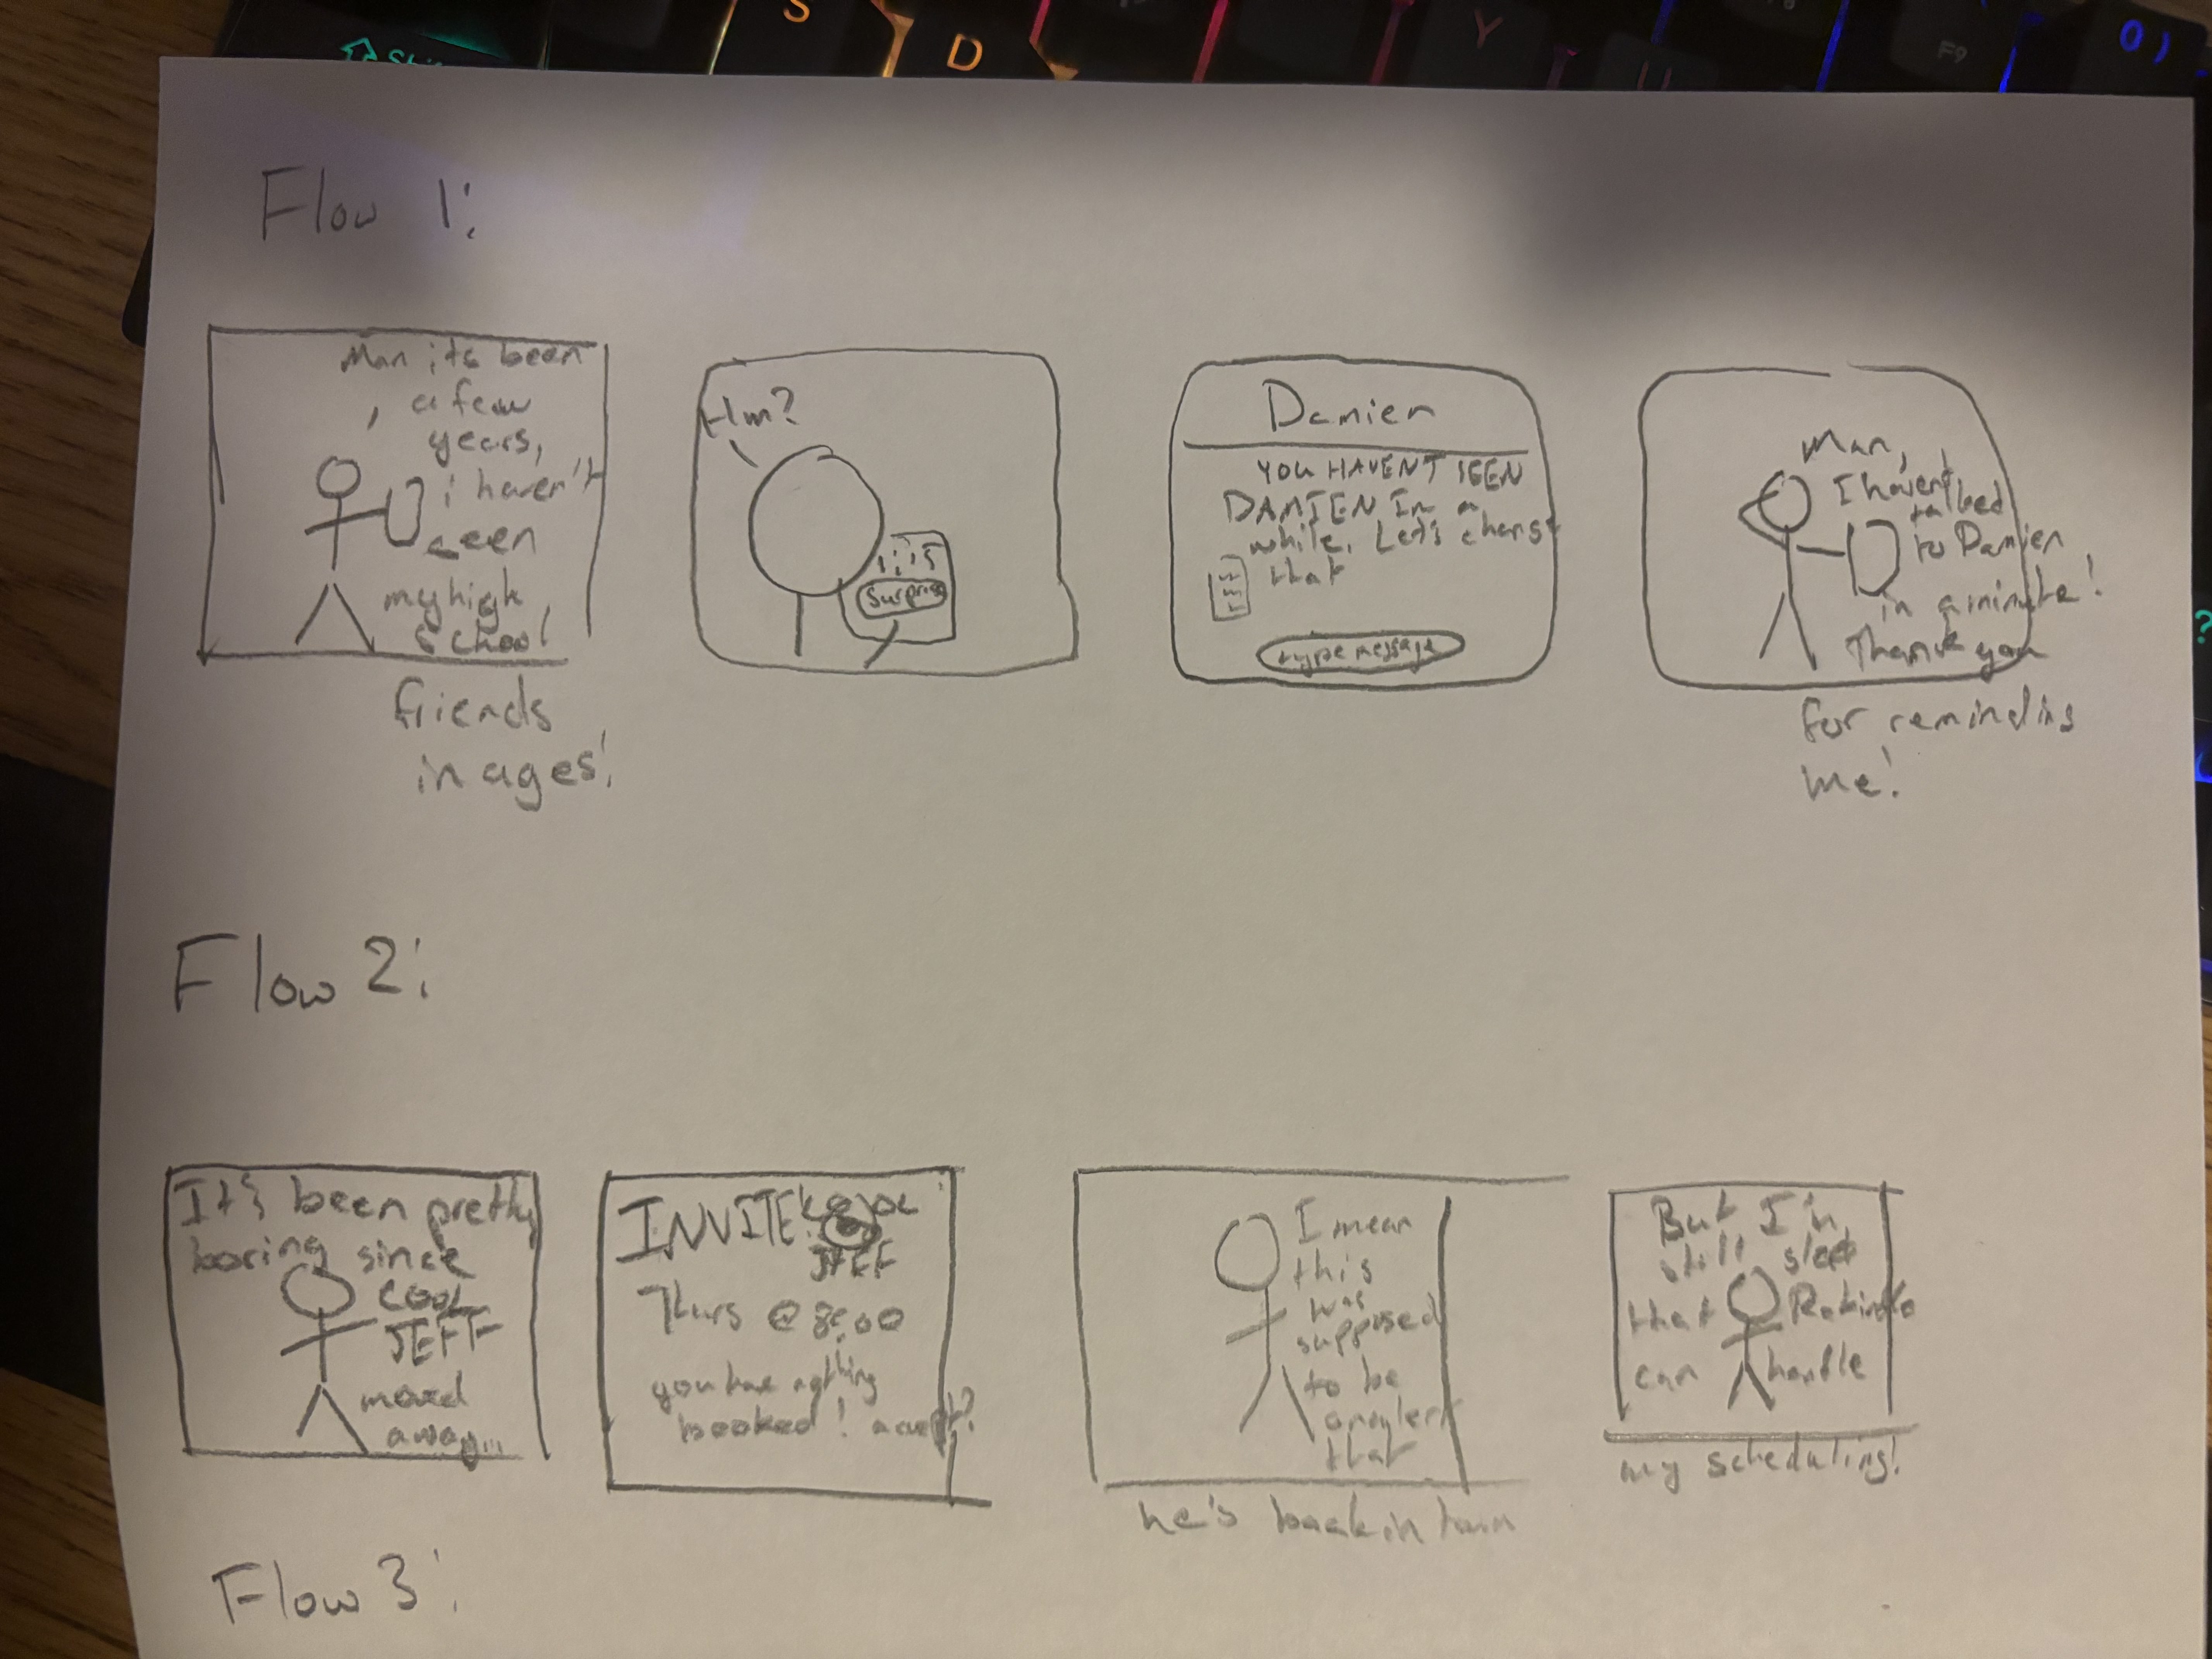 S
D
Y
U
F9
0 )
Shif
?
Flow 1:
Man its been
a few
years,
i haven't
seen
my high
school
friends
in ages!
Hm?
Surprise
Damien
YOU HAVENT SEEN
DAMIEN In a
while. Let's change
that
type message
Man,
I haven't
talked
to Damien
in a minute!
Thank you
for reminding
me!
Flow 2:
It's been pretty
boring since
COOL
JEFF
moved
away...
INVITE:
JEFF
Thurs @ 8:00
you have nothing
booked! accept?
I mean
this
was
supposed
to be
an
that
he's back in town
But I'm
still
that
can handle
my scheduling!
Flow 3: